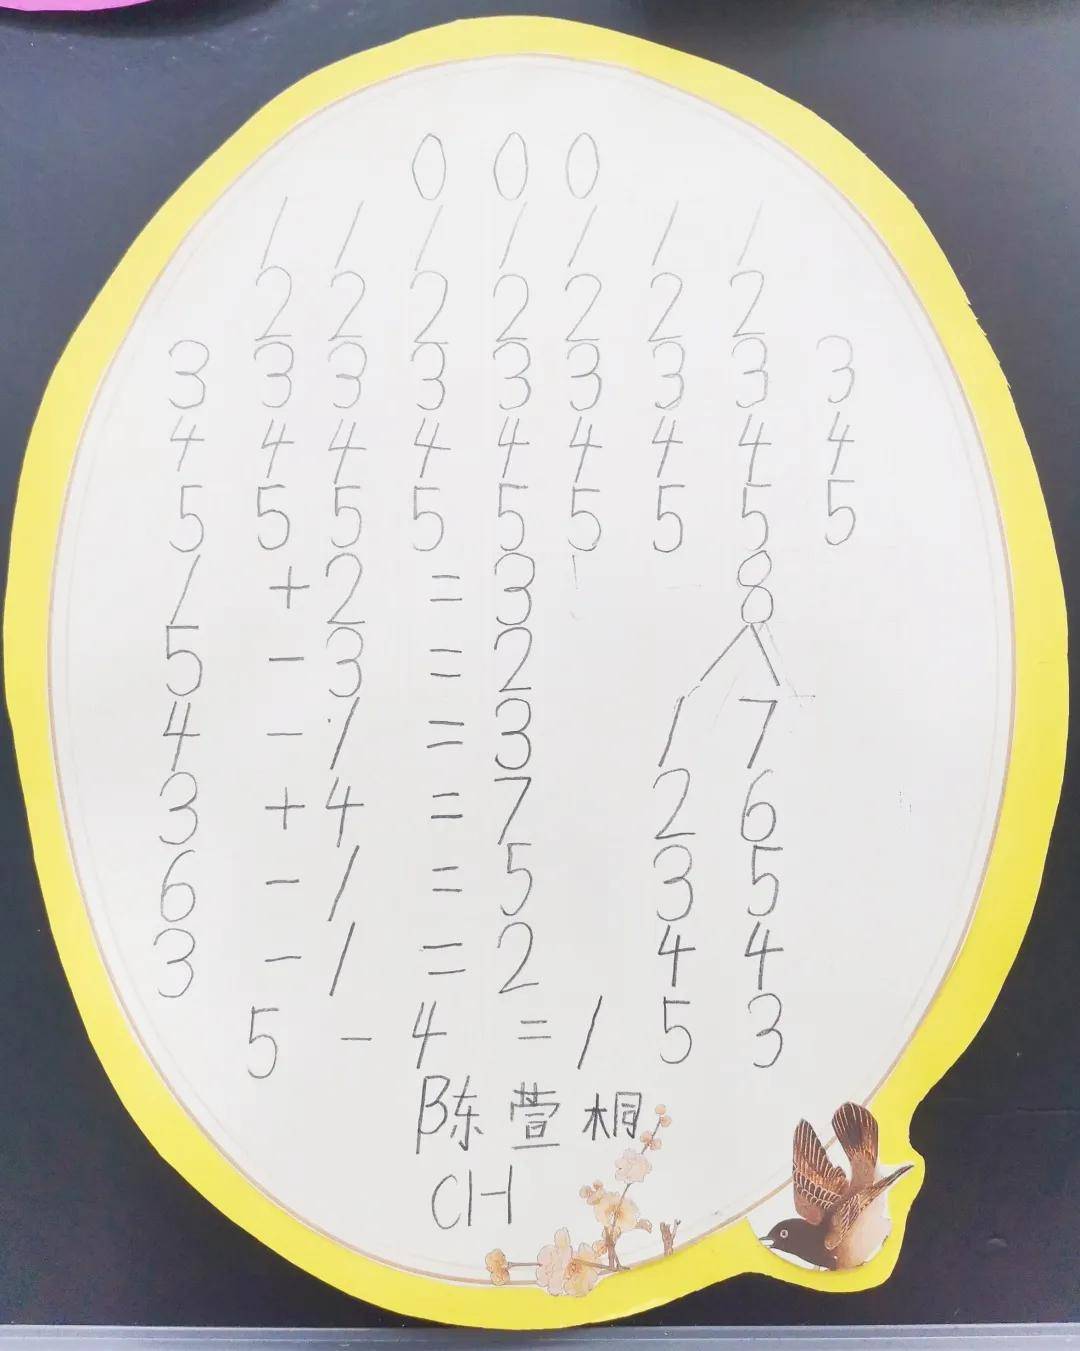 0 0 0
1 1 1 1 1 1 1
2 2 2 2 2 2 2
3 3 3 3 3 3 3 3 3
4 4 4 4 4 4 4 4 4
5 5 5 5 5 5 5 5 5
1 + 2 = 3 8
5 - 3 = 2
4 - 1 = 3 1 7
3 + 4 = 7 2 6
6 - 1 = 5 3 5
3 - 1 = 2 4 4
5 - 4 = 1 5 3
陈萱桐
CH